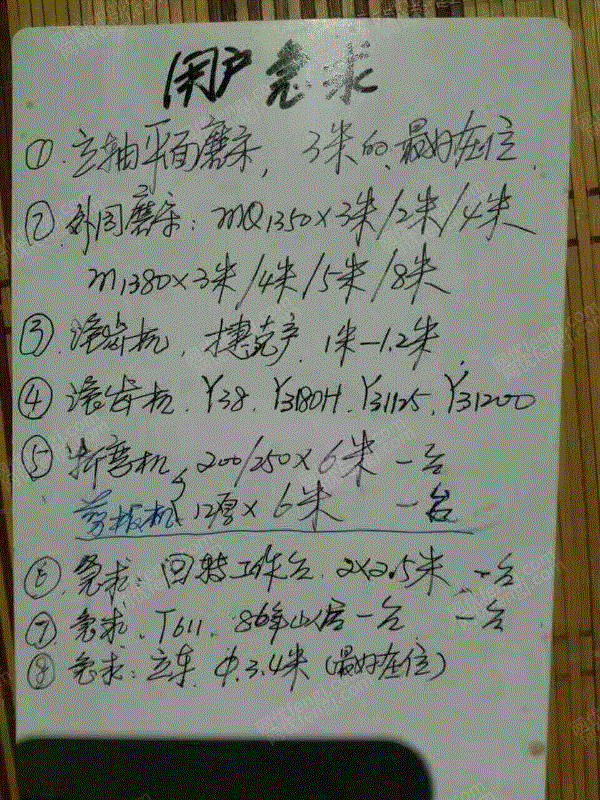 用户急求
① 立轴平面磨床, 3米的、最好在位
② 外园磨床: MQ1350×3米/2米/4米
M1380×3米/4米/5米/8米
③ 滚齿机、捷克产 1米-1.2米
④ 滚齿机、Y38、Y3180H、Y31125、Y31200
⑤ 折弯机 200/250×6米 一台
剪板机 12厚×6米 一台
⑥ 急求: 回转工作台、2×2.5米 一台
⑦ 急求、T611、86年 一台 一台
⑧ 急求: 立车、φ3.4米 (最好在位)